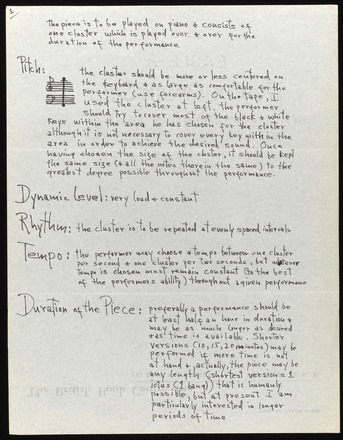 1
The piece is to be played on piano & consists of
one cluster which is played over & over for the
duration of the performance
Pitch: the cluster should be more or less centered on
the keyboard & as large as comfortable for the
performer (use forearms). On the tape, I
used the cluster at left. the performer
should try to cover most of the black & white
keys within the area he has chosen for the cluster
although it is not necessary to cover every key within the
area in order to achieve the desired sound. Once
having chosen the size of the cluster, it should be kept
the same size (& all the notes therein the same) to the
greatest degree possible throughout the performance.
Dynamic Level: very loud & constant
Rhythm: the cluster is to be repeated at evenly spaced intervals
Tempo: the performer may choose a tempo between one cluster
per second & one cluster per two seconds, but whatever
tempo is chosen must remain constant (to the best
of the performers ability) throughout a given performance
Duration of the Piece: preferably a performance should be
at least half an hour in duration &
may be as much longer as desired
& as time is available. Shorter
versions (10, 15, 20 minutes) may be
performed if more time is not
at hand &, actually, the piece may be
any length (shortest version = 1
ictus (1 bang) that is humanly
possible, but at present I am
particularly interested in longer
periods of time